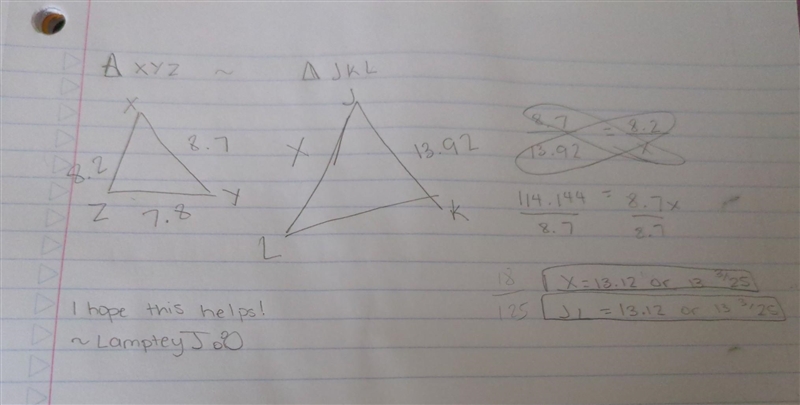 Δ XYZ ~ Δ JKL
X
8.7
8.2
Z
Y
7.8
J
X
13.92
K
L
8.7 = 8.2
13.92 X
114.144 = 8.7x
8.7 8.7
18
125
X = 13.12 or 13 3/25
JL = 13.12 or 13 3/25
I hope this helps!
~ Lamptey J